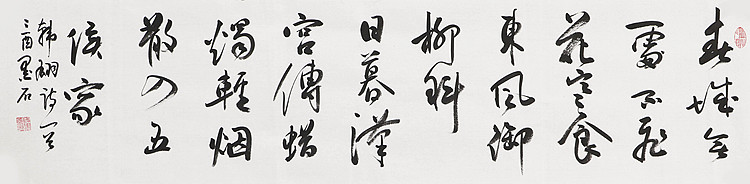 春城无
處不飛
花寒食
東風御
柳斜
日暮漢
宮傳蜡
燭輕烟
散入五
侯家
韓翃詩一首
酉墨石